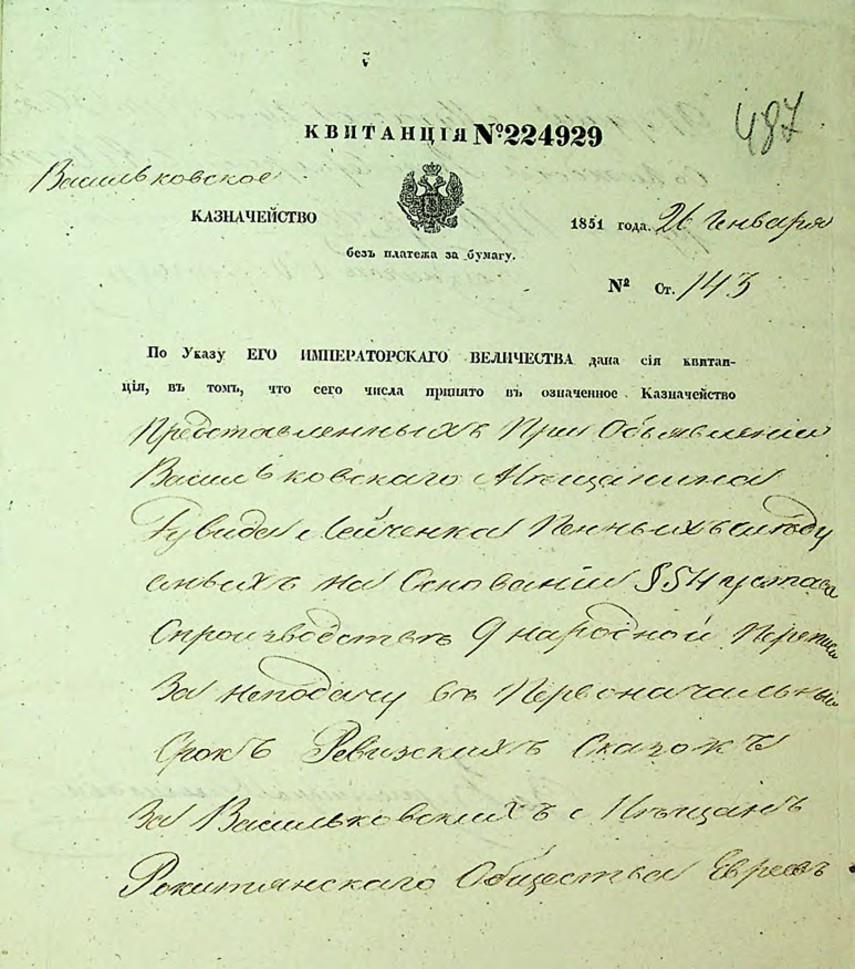 487
КВИТАНЦІЯ №224929
Васильковское
КАЗНАЧЕЙСТВО
1851 года. 26 Генваря
безъ платежа за бумагу.
№ Ст. 143
По Указу ЕГО ИМПЕРАТОРСКАГО ВЕЛИЧЕСТВА дана сія квитан-
ція, въ томъ, что сего числа принято въ означенное Казначейство
Представленныхъ При Объявленіи
Васильковскаго Мѣщанина
Пенныхъ
на Основаніи §54 устава
Спроизводствѣ 9 народной Переписи
За неподачу въ Первоначальный
Срокъ Ревизскихъ Сказокъ
За Васильковскихъ Мѣщанъ
Рокитянскаго Общества Евреевъ